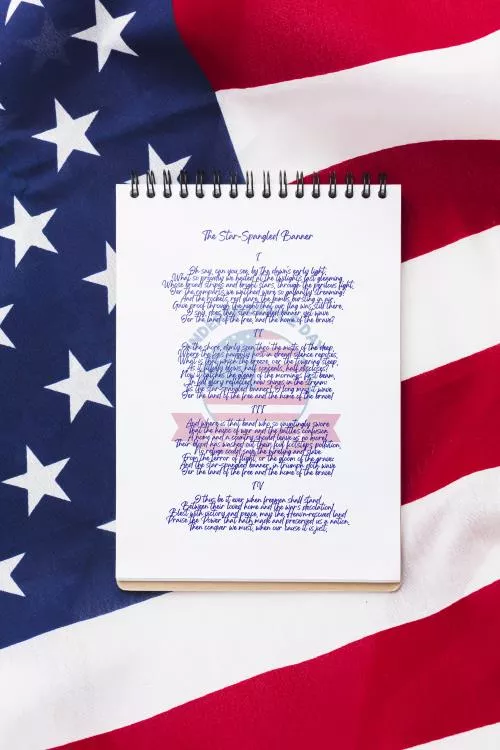 The Star-Spangled Banner
I
Oh say, can you see, by the dawn's early light,
What so proudly we hailed at the twilight's last gleaming,
Whose broad stripes and bright stars, through the perilous fight,
O'er the ramparts we watched were so gallantly streaming?
And the rocket's red glare, the bombs bursting in air,
Gave proof through the night that our flag was still there,
O say does that star-spangled banner yet wave
O'er the land of the free and the home of the brave?
II
On the shore, dimly seen thro' the mists of the deep,
Where the foe's haughty host in dread silence reposes,
What is that which the breeze, o'er the towering steep,
As it fitfully blows, half conceals, half discloses?
Now it catches the gleam of the morning's first beam,
In full glory reflected now shines in the stream:
'Tis the star-spangled banner! O long may it wave
O'er the land of the free and the home of the brave!
III
And where is that band who so vauntingly swore
That the havoc of war and the battle's confusion,
A home and a country should leave us no more!
Their blood has washed out their foul footsteps' pollution.
No refuge could save the hireling and slave
From the terror of flight, or the gloom of the grave:
And the star-spangled banner, in triumph doth wave
O'er the land of the free and the home of the brave!
IV
O thus be it ever, when freemen shall stand
Between their loved home and the war's desolation!
Blest with victory and peace, may the Heav'n-rescued land
Praise the Power that hath made and preserved us a nation.
Then conquer we must, when our cause it is just,
DAY